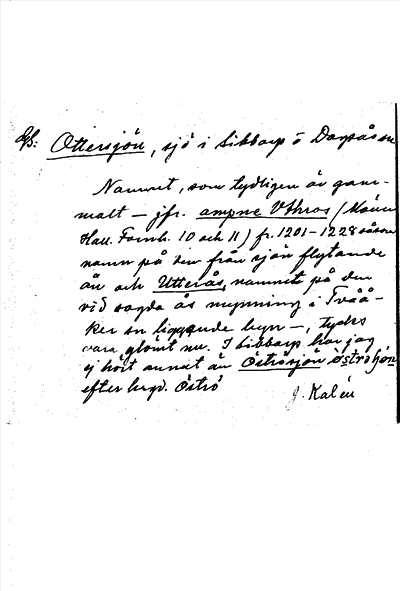 GS: Ottersjön, sjö i Sibbarp o Dagsås sn
Namnet, som tydligen är gam-
malt – jfr. ampne Vthros (Månn
Hall. Fornh. 10 och 11) fr. 1201–1228 såsom
namn på den från sjön flytande
ån och Utterås, namnet på den
vid sagda ås mynning i Tvåå-
ker sn liggande byn –, tycks
vara glömt nu. I Sibbarp har jag
ej hört annat än Öströsjön
efter byn Öströ
J. Kalén